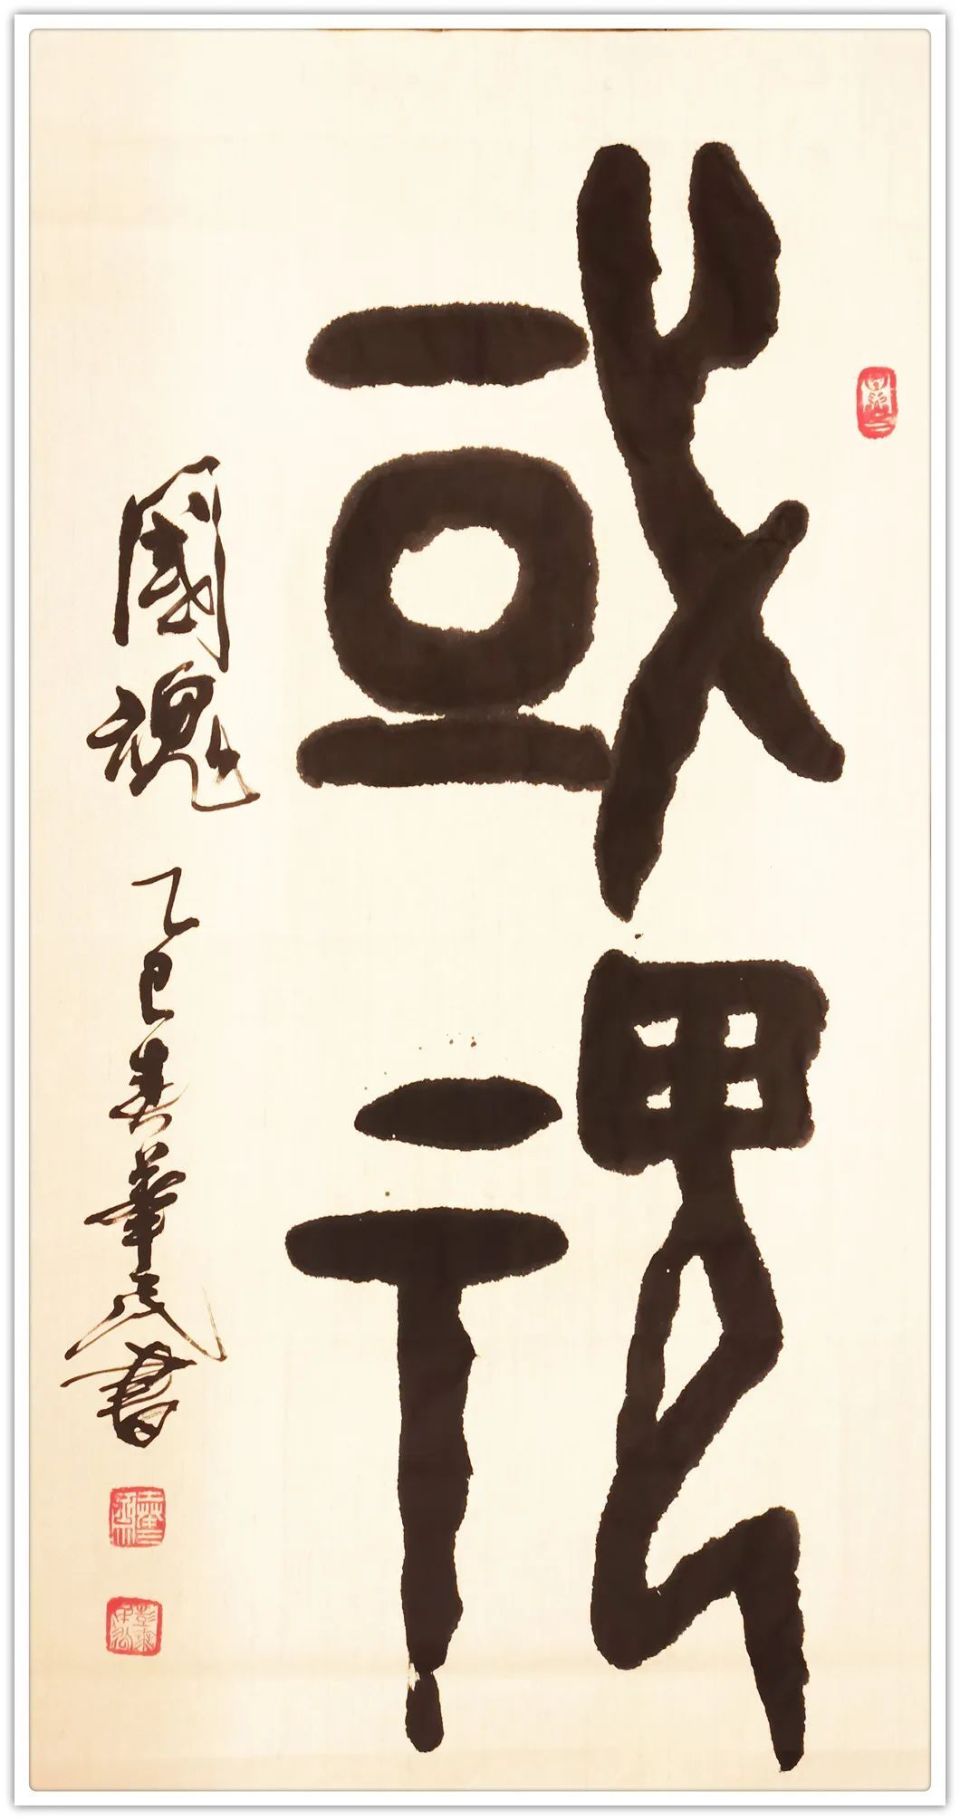 國魂
國魂 乙巳春華民書